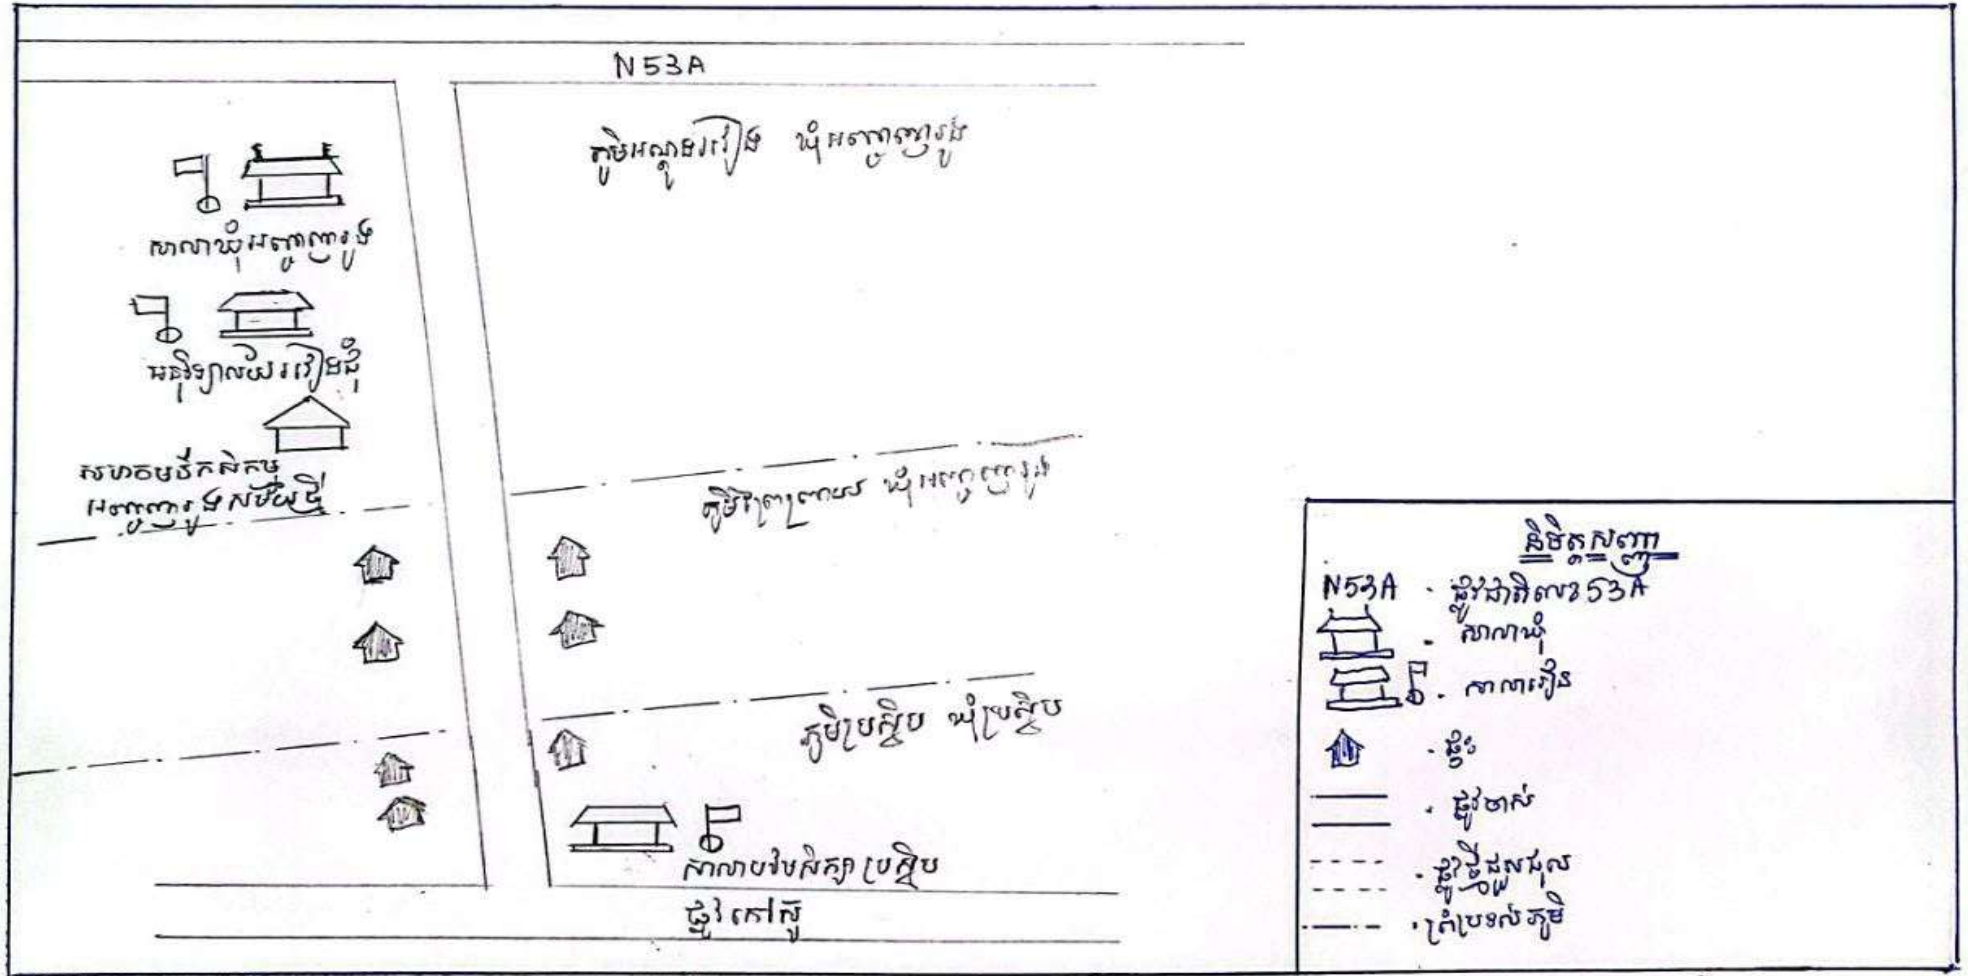 N53A
ភូមិអណ្តូងរវៀង ឃុំអញ្ចាញរូង
សាលាឃុំអញ្ចាញរូង
អនុវិទ្យាល័យរវៀងជុំ
សហគមន៍កសិកម្ម
អញ្ចាញរូងសម័យថ្មី
ភូមិព្រៃព្រាល ឃុំអញ្ចាញរូង
ភូមិប្រស្និប ឃុំប្រស្និប
សាលាបឋមសិក្សាប្រស្និប
ផ្លូវកៅស៊ូ
និមិត្តសញ្ញា
N53A - ផ្លូវជាតិលេខ 53A
- សាលាឃុំ
- សាលារៀន
- ផ្ទះ
- ផ្លូវចាស់
- ផ្លូវថ្មីជួសជុល
- ព្រំប្រទល់ភូមិ